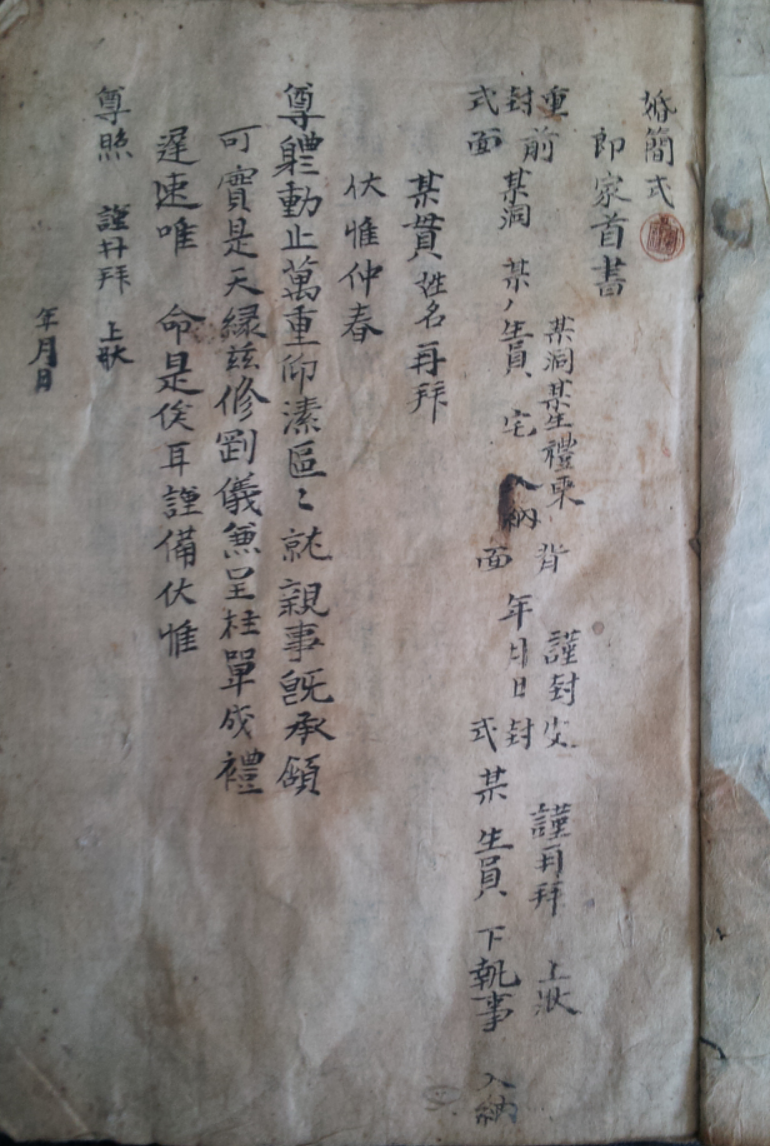 婚簡式
郎家首書
重封式 前面 某洞 某生員 宅 入納 某洞某生禮東 背面 年月日 謹封
封式 某 生員 下執事 入納 謹再拜 上狀
某貫 姓名 再拜
伏惟仲春
尊軆動止萬重仰溸區〻就親事旣承頷
可實是天緣玆修劄儀兼呈柱單成禮
遲速唯 命是俟耳謹備伏惟
尊照 謹再拜 上狀
年月日